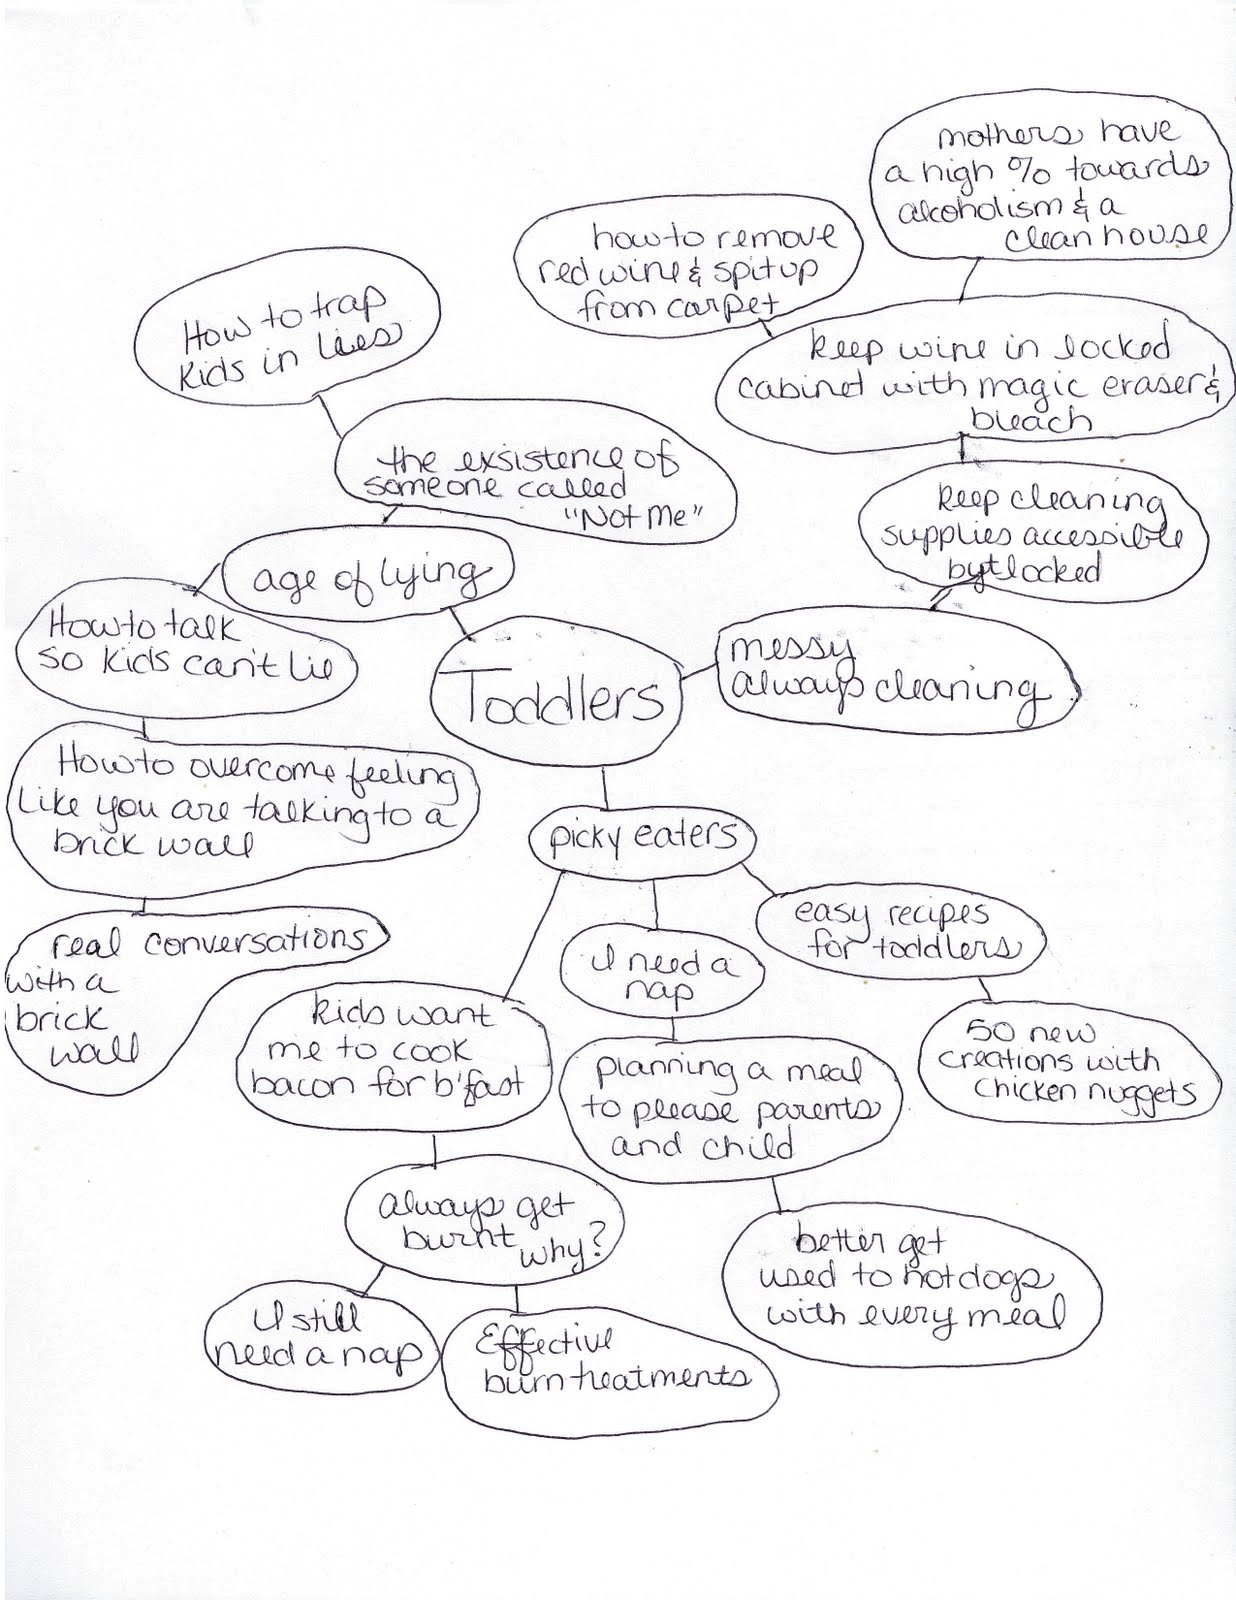 mothers have
a high % towards
alcoholism & a
clean house
how to remove
red wine & spitup
from carpet
How to trap
kids in lies
keep wine in locked
cabinet with magic eraser &
bleach
the exsistence of
someone called
"Not Me"
keep cleaning
supplies accessible
byt locked
age of lying
How to talk
so kids can't lie
Toddlers
messy
always cleaning
How to overcome feeling
like you are talking to a
brick wall
picky eaters
easy recipes
for toddlers
real conversations
with a
brick
wall
I need a
nap
kids want
me to cook
bacon for b'fast
50 new
creations with
chicken nuggets
planning a meal
to please parents
and child
always get
burnt why?
better get
used to hotdogs
with every meal
I still
need a nap
Effective
burn treatments